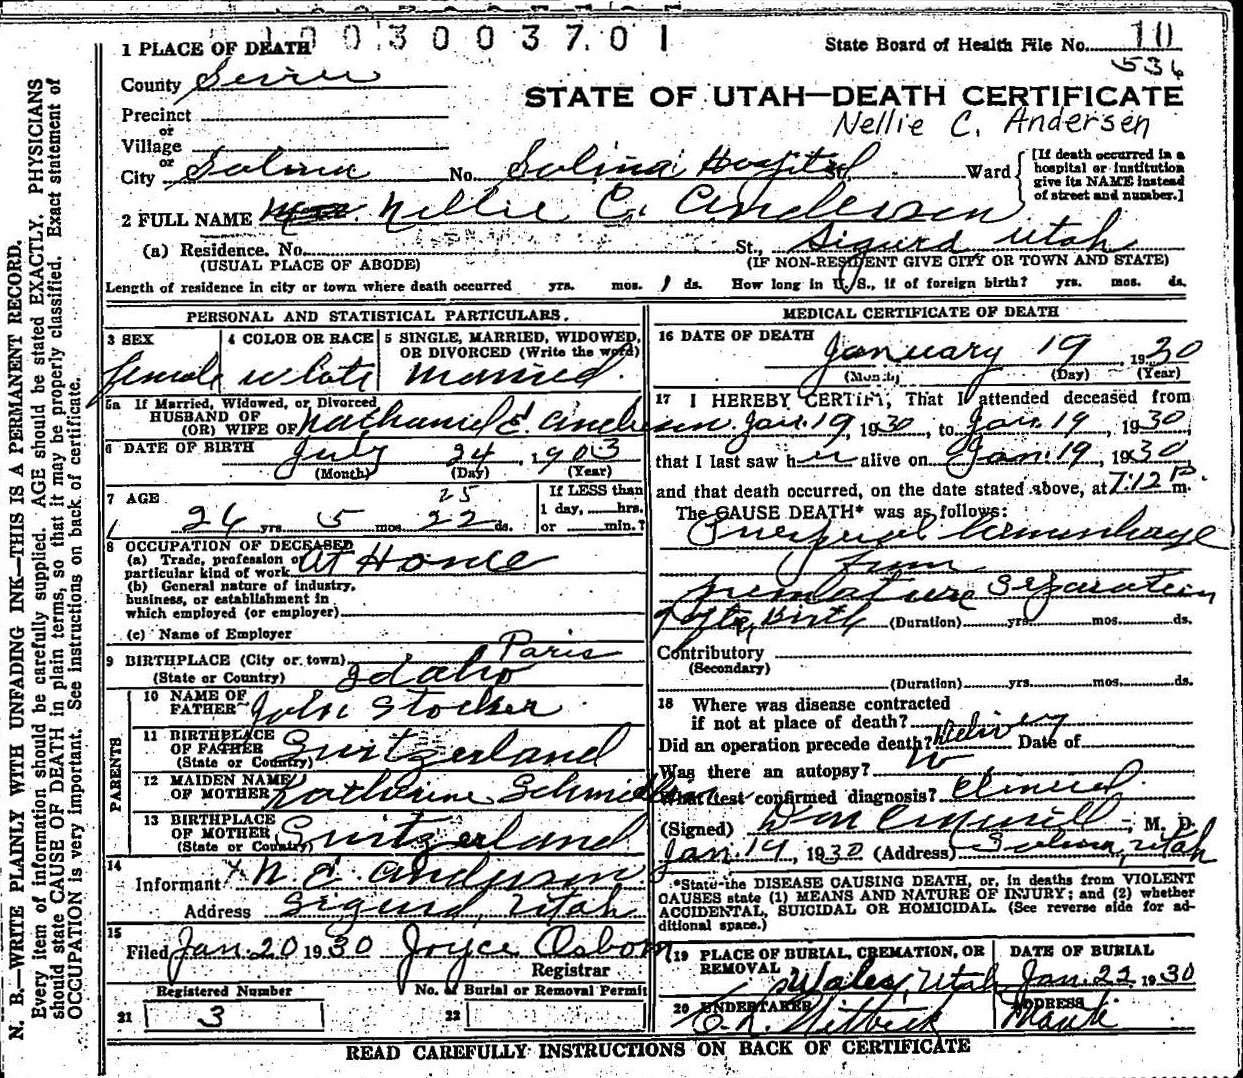 1 PLACE OF DEATH 1 0 0 3 0 0 3 7 0 1
State Board of Health File No. 10
536
County Sevier
STATE OF UTAH—DEATH CERTIFICATE
Nellie C. Andersen
Precinct
or
Village
or
City Salina No. Salina Hospital St. Ward
[If death occurred in a
hospital or institution
give its NAME instead
of street and number.]
2 FULL NAME Nellie C. Andersen
(a) Residence. No. St., Sigurd Utah
(USUAL PLACE OF ABODE) (IF NON-RESIDENT GIVE CITY OR TOWN AND STATE)
Length of residence in city or town where death occurred yrs. mos. 1 ds. How long in U. S., if of foreign birth? yrs. mos. ds.
PERSONAL AND STATISTICAL PARTICULARS.
3 SEX
female
4 COLOR OR RACE
white
5 SINGLE, MARRIED, WIDOWED,
OR DIVORCED (Write the word)
Married
5a If Married, Widowed, or Divorced
HUSBAND OF
(OR) WIFE OF Nathaniel E. Andersen
6 DATE OF BIRTH July 24, 1903
(Month) (Day) (Year)
7 AGE 25
26 yrs 5 mos 22 ds.
If LESS than
1 day, hrs.
or min.?
8 OCCUPATION OF DECEASED
(a) Trade, profession or
particular kind of work At Home
(b) General nature of industry,
business, or establishment in
which employed (or employer)
(c) Name of Employer
9 BIRTHPLACE (City or town) Paris
(State or Country) Idaho
PARENTS
10 NAME OF
FATHER John Stocker
11 BIRTHPLACE
OF FATHER
(State or Country) Switzerland
12 MAIDEN NAME
OF MOTHER Katherine
13 BIRTHPLACE
OF MOTHER
(State or Country) Switzerland
14
Informant N. E. Anderson
Address Sigurd, Utah
15
Filed Jan. 20 1930 Joyce Osborn
Registrar
Registered Number No. of Burial or Removal Permit
21 3 22
MEDICAL CERTIFICATE OF DEATH
16 DATE OF DEATH
January 19, 1930
(Month) (Day) (Year)
17 I HEREBY CERTIFY, That I attended deceased from
Jan. 19, 1930, to Jan. 19, 1930,
that I last saw her alive on Jan. 19, 1930
and that death occurred, on the date stated above, at 7:12 P.m.
The CAUSE DEATH* was as follows:
Puerperal hemorrhage
from
premature separation
after Birth (Duration) yrs. mos. ds.
Contributory
(Secondary)
(Duration) yrs. mos. ds.
18 Where was disease contracted
if not at place of death?
Did an operation precede death? Delivery Date of
Was there an autopsy? No
What test confirmed diagnosis? Clinical
(Signed) M. D.
Jan. 19, 1930 (Address) Salina, Utah
*State the DISEASE CAUSING DEATH, or, in deaths from VIOLENT
CAUSES state (1) MEANS AND NATURE OF INJURY; and (2) whether
ACCIDENTAL, SUICIDAL OR HOMICIDAL. (See reverse side for ad-
ditional space.)
19 PLACE OF BURIAL, CREMATION, OR
REMOVAL Wales, Utah
DATE OF BURIAL
Jan. 22 1930
20 UNDERTAKER
ADDRESS
Manti
READ CAREFULLY INSTRUCTIONS ON BACK OF CERTIFICATE
N. B.—WRITE PLAINLY WITH UNFADING INK—THIS IS A PERMANENT RECORD.
Every item of information should be carefully supplied. AGE should be stated EXACTLY. PHYSICIANS
should state CAUSE OF DEATH in plain terms, so that it may be properly classified. Exact statement of
OCCUPATION is very important. See instructions on back of certificate.